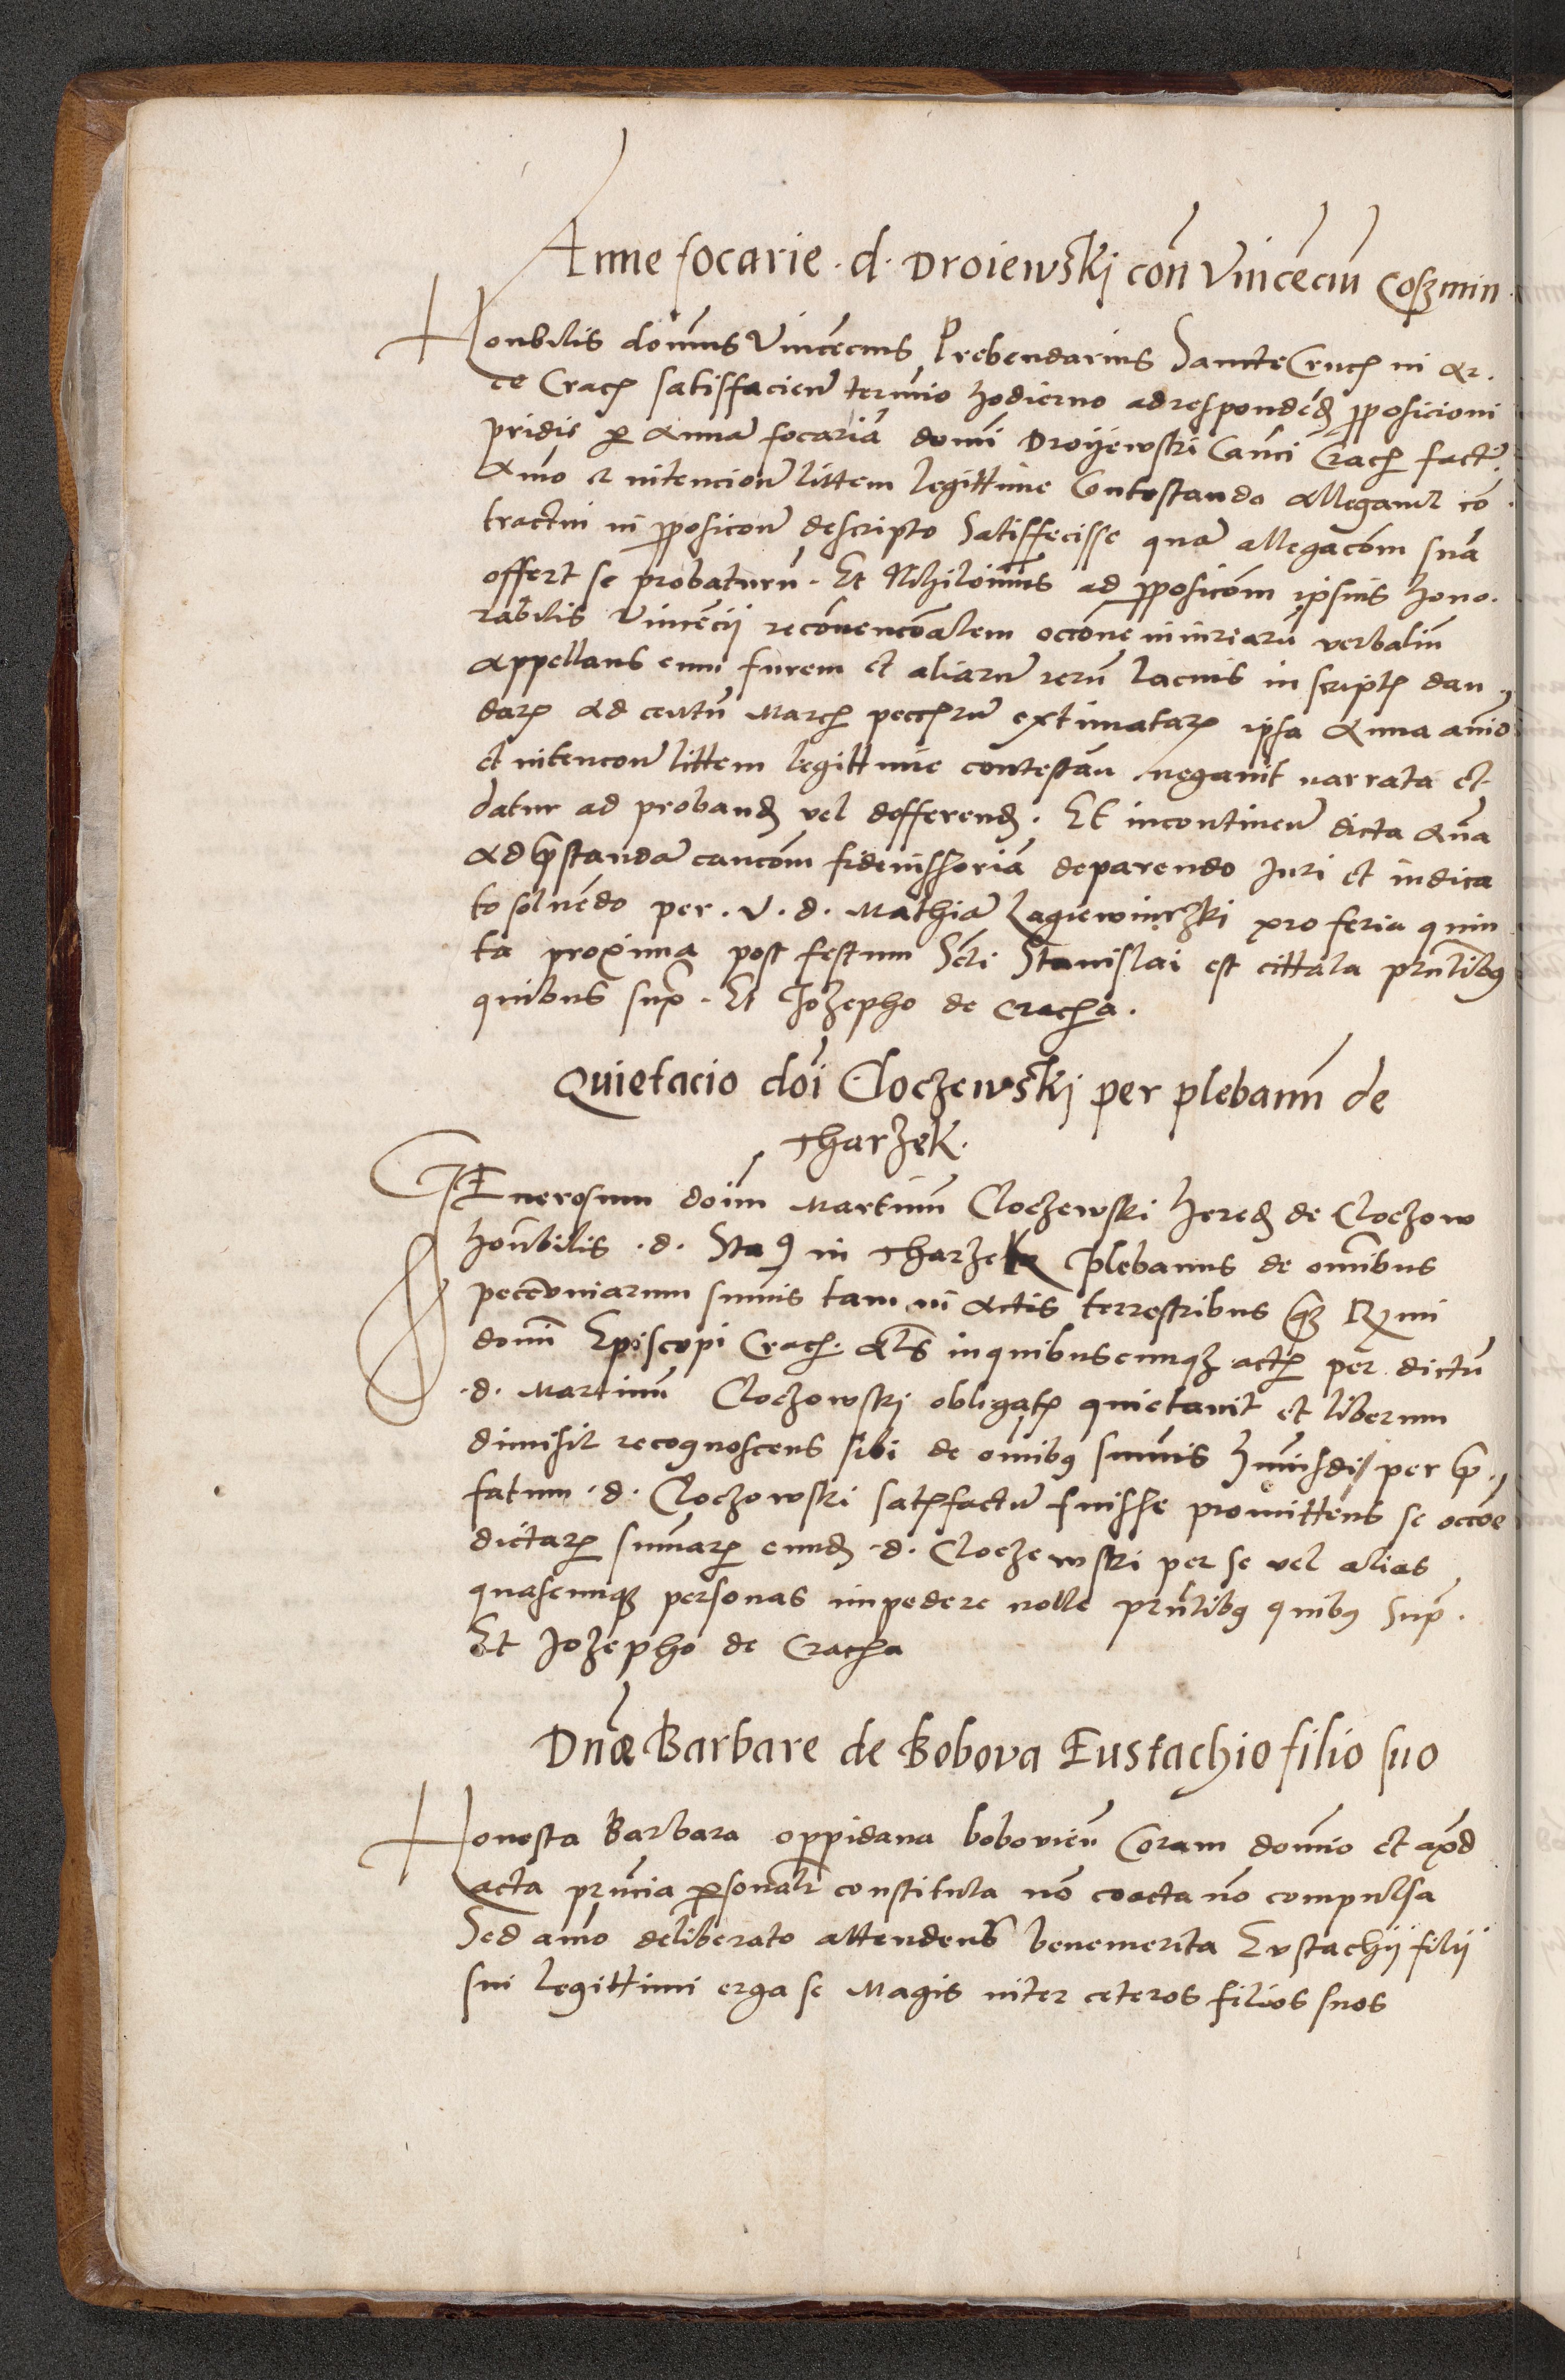 Anne focarie .d. Droiewskj con̄ Vincēciū Coßmin
Honbilis dom̄us Vincēcius Prebendarius Sancte Cruc̄ in ar
ce Crac̄ satisfacień termīo hodierno ad respondēd̄ p̱posicioni
pridie p̱ Annā focariā domī Droyewski Canci Crac̄ facte
Aīmo et intencionē littem legittime Contestando allegauit cō
tractui in p̱posiconē descripto Satisfecisse quā allegacōm suā
offert se probaturū. Et Nihilomīnus ad p̱posicōm ipsius hono
rabilis Vincēcii recōuencōalem occōne iniuriarū verbaliū
Appellans eum furem et aliarū rerū lacius in script̄ dan
dar̄ ad centū marc̄ peccharū extimatar̄ ipsa Anna aīmo
et intenconē littem legittime contestań negauit narrata et
datur ad proband̄ vel defferend̄. Et incontineń dicta Aña
ad prestandā caucōm fideiussoriā de parendo Juri et iudica
to soluēdo per .V. d. Mathiā Lagiewniczki pro feria quin
ta proxima post festum Scti Stanislai est cittata pñtibus
quibus sup̱. Et Jozepho de Crac̄a.
Quietacio doī Cloczewskj per plebanū de
Tharzek.
GEnerosum doīm Martinū Cloczewski hered̄ de Cloczow
honbilis .d. Sta9 in Tharzek plebanus de omībus
pecuniarum sumīs tam in Actis terrestribus q̄z Rmi
domī Episcopi Crac̄. als in quibuscumqz act̄ per dictū
.d. Martinū Cloczowskj obligat̄ quietauit et liberum
dimisit recognoscens sibi de omībus sum̄is hmōi per pre
fatum .d. Cloczowski satisfactū fuisse promittens se occōe
dictar̄ sum̄ar̄ eund̄ .d. Cloczewski per se vel alias
quascumqz personas impedere nolle pñtibus quibus Sup̱.
Et Jozepho de Cracha
Dnæ Barbare de Bobova Eustachio filio suo
Honesta Barbara oppidana bobovień Coram domīo et apd
acta pñcia p̱sonalr constituta nō coacta nō compulsa
Sed aīmo deliberato attendens benemerita Eustachii filii
sui legittimi erga se Magis inter ceteros filios suos